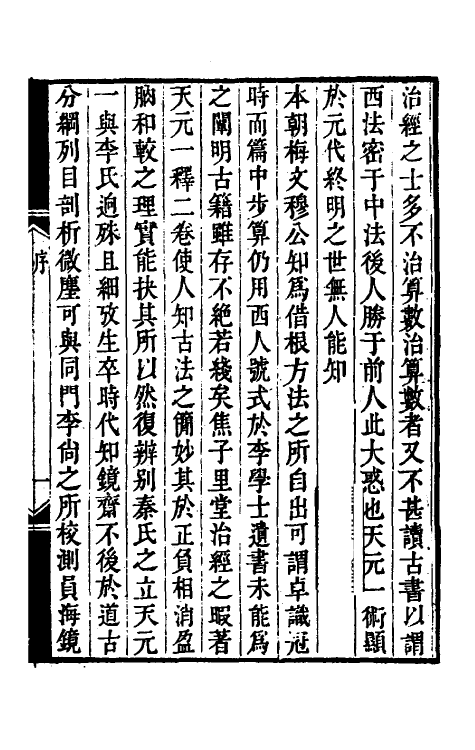 治經之士多不治算數治算數者又不甚讀古書以謂
西法密于中法後人勝于前人此大惑也天元一術顯
於元代終明之世無人能知
本朝梅文穆公知爲借根方法之所自出可謂卓識冠
時而篇中步算仍用西人號式於李學士遺書未能爲
之闡明古籍雖存不絕若綫矣焦子里堂治經之暇著
天元一釋二卷使人知古法之簡妙其於正負相消盈
朒和較之理實能抉其所以然復辨别秦氏之立天元
一與李氏迥殊且細攷生卒時代知鏡齋不後於道古
分綱列目剖析微塵可與同門李尙之所校測員海鏡
序
一